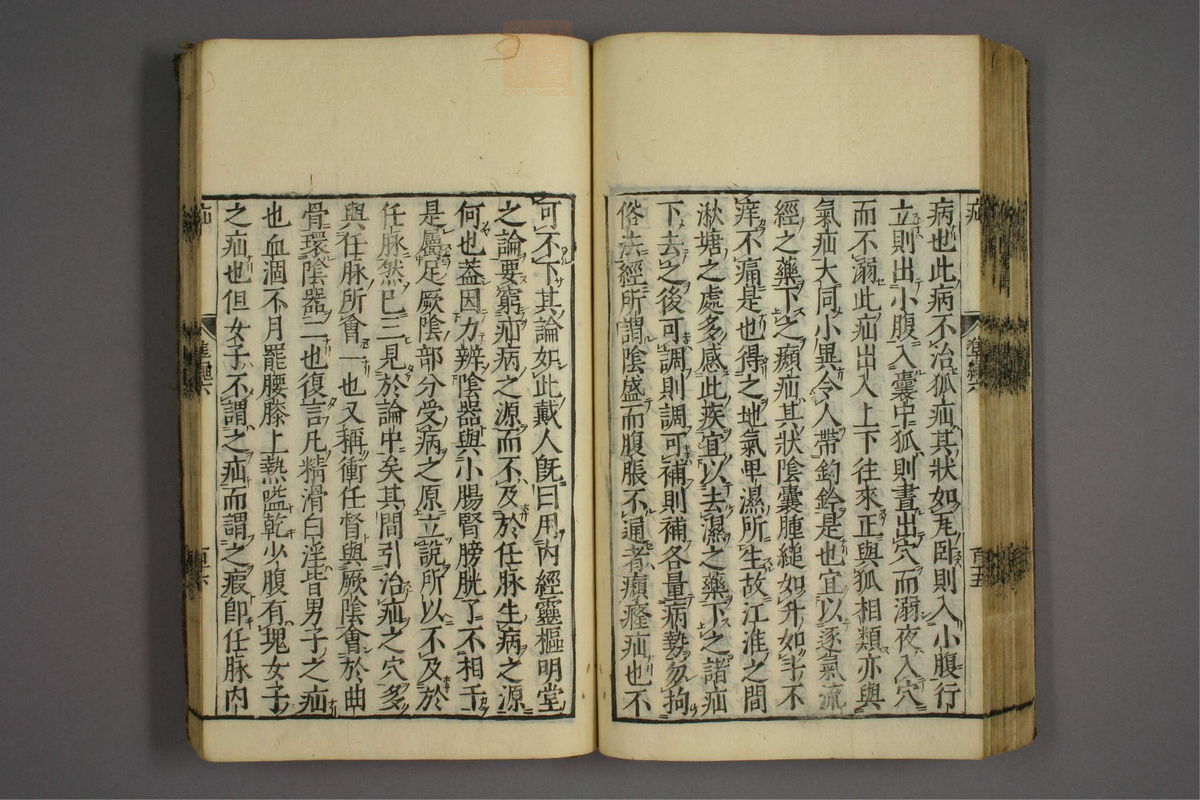 病也此病不治狐疝其狀如𤬦卧則入小腹行
立則出小腹入囊中狐則晝出穴而溺夜入穴
而不溺此疝出入上下往來正與狐相類亦與
氣疝大同小異令人帶鈎鈐是也宜以逐氣流
經之藥下之㿗疝其狀陰囊腫縋如升如斗不
痒不痛是也得之地氣卑濕所生故江淮之間
湫塘之處多感此疾宜以去濕之藥下之諸疝
下去之後可調則調可補則補各量病勢勿拘
俗法經所謂陰盛而腹脹不通者㿗癃疝也不
可不下其論如此戴人旣曰用內經靈樞明堂
之論要窮疝病之源而不及於任脉生病之源
何也葢因力辨陰器與小腸腎膀胱了不相干
是屬足厥陰部分受病之原立說所以不及於
任脉然已三見於論中矣其間引治疝之穴多
與任脉所會一也又稱衝任督與厥陰會於曲
骨環陰器二也復言凡精滑白淫皆男子之疝
也血涸不月罷腰膝上熱嗌乾少腹有塊女子
之疝也但女子不謂之疝而謂之瘕卽任脉內
疝
百五
疝
百六